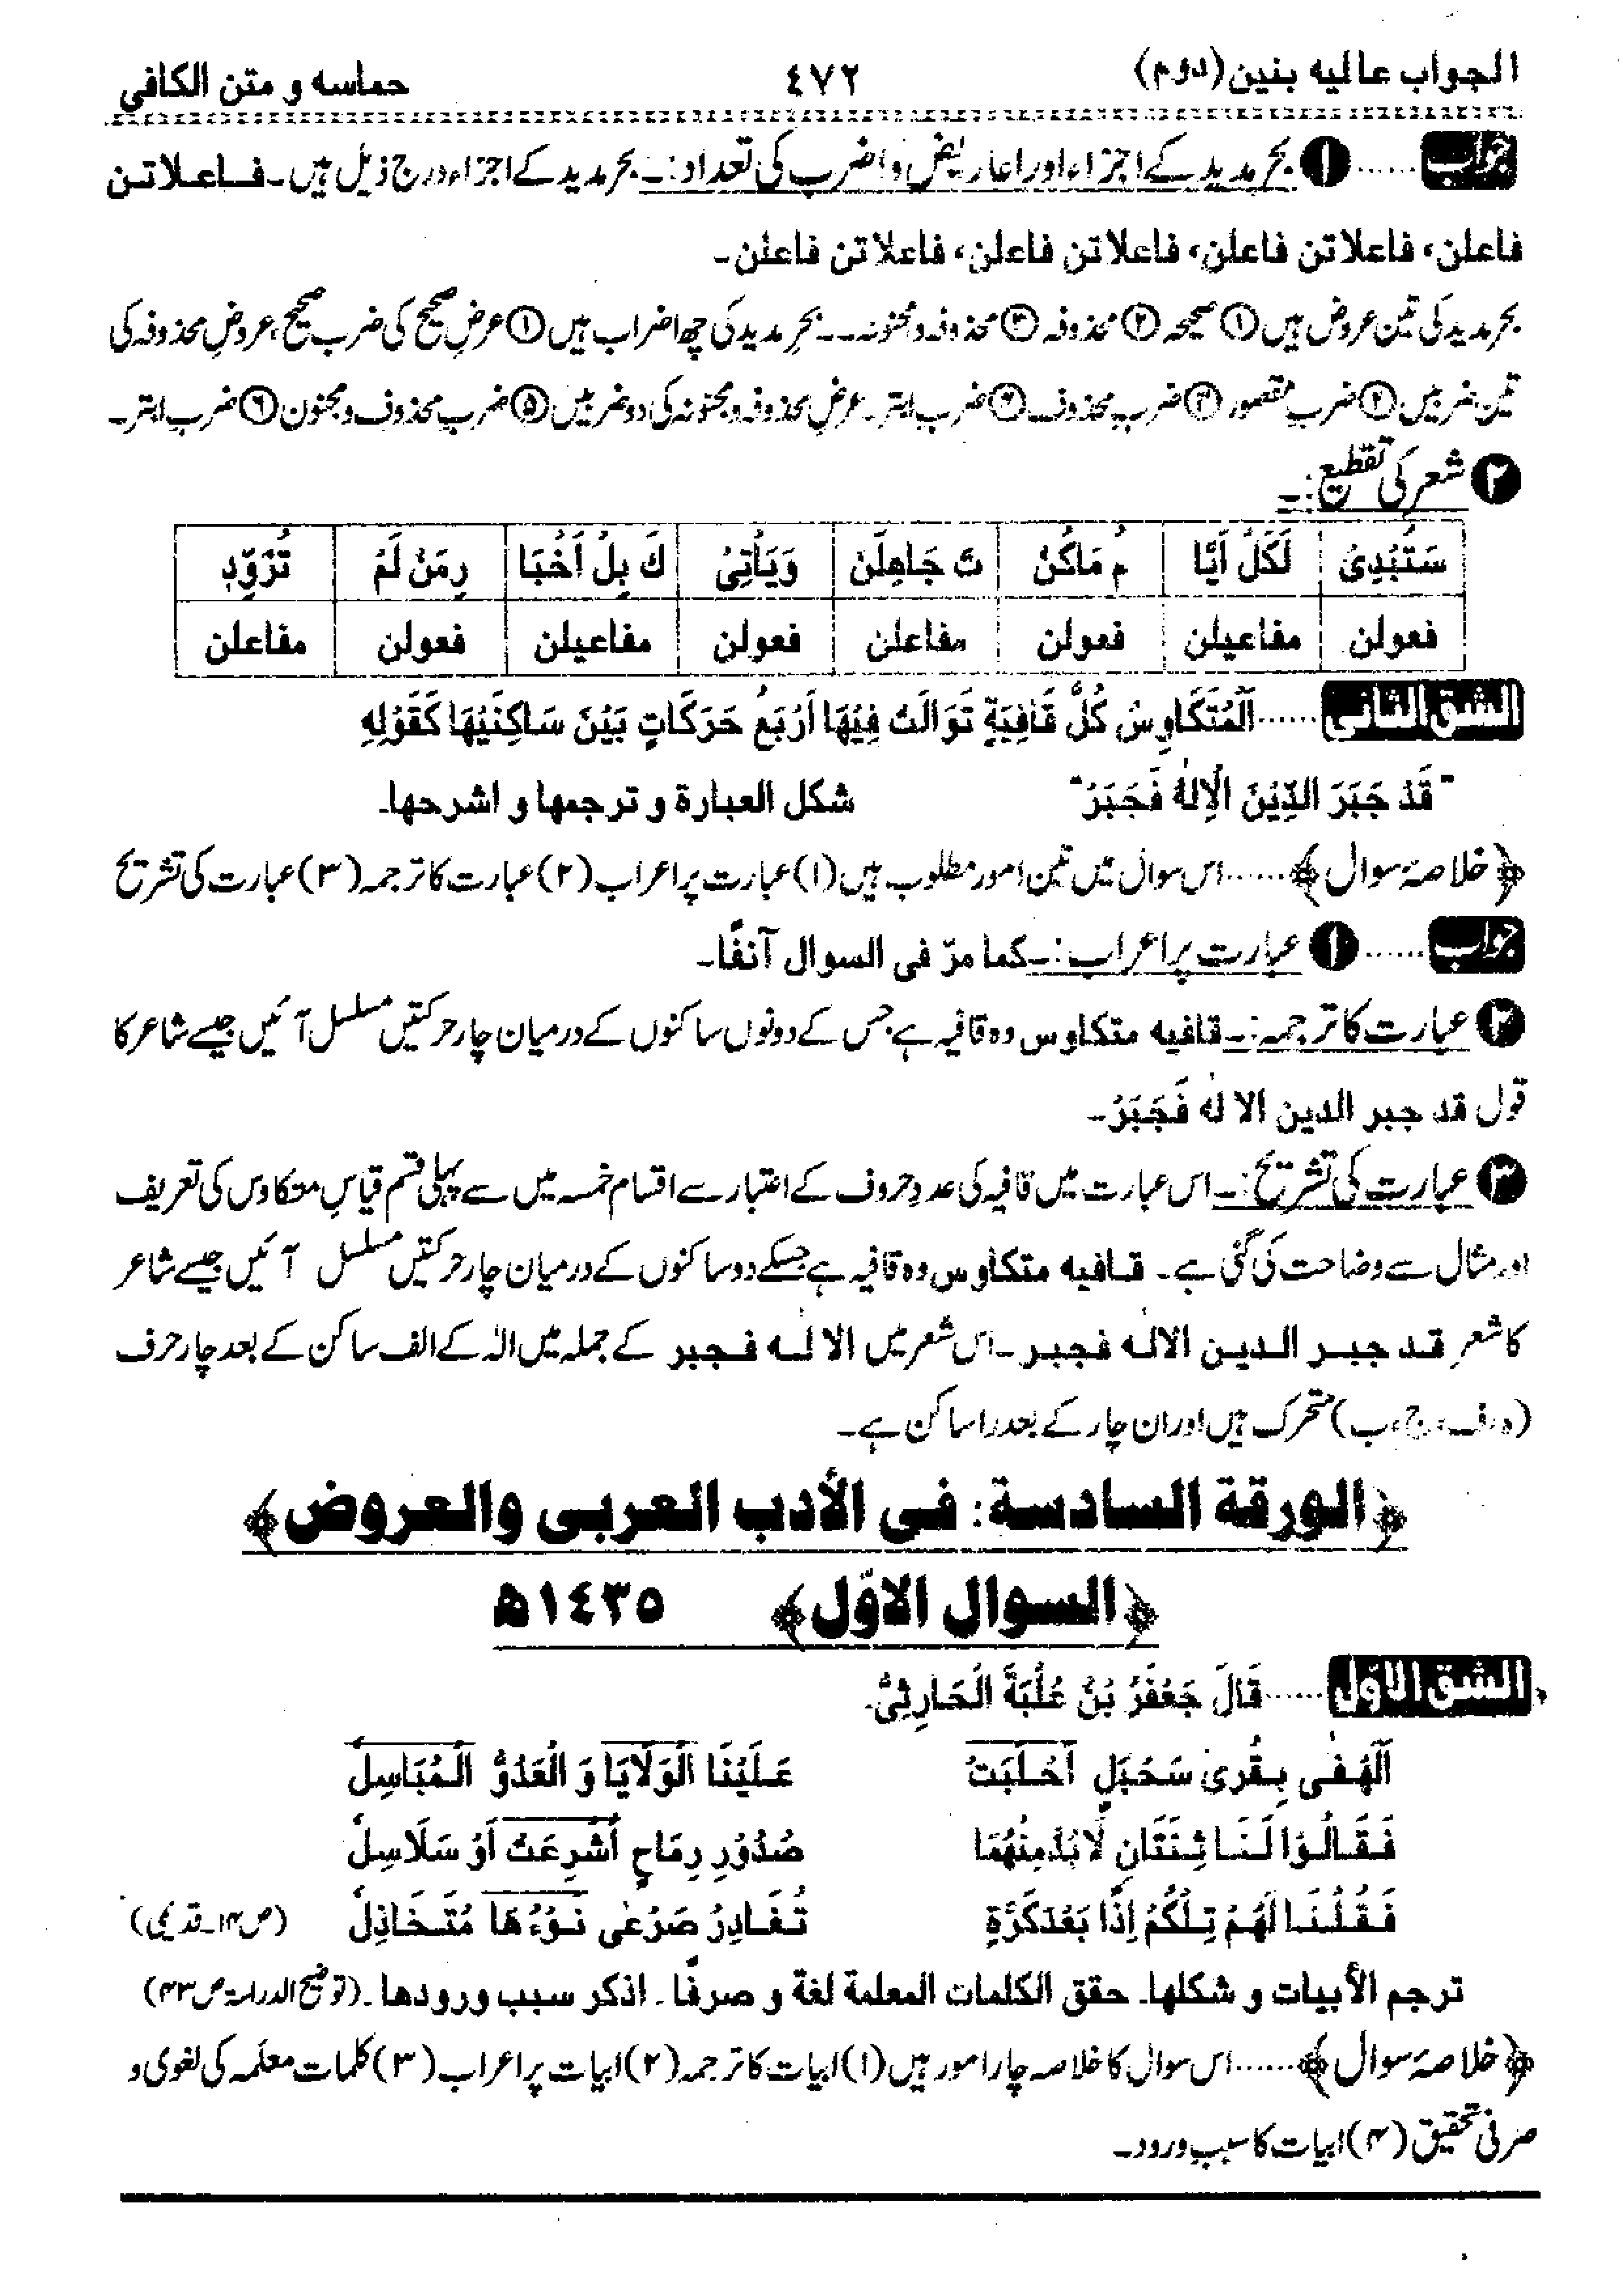 الجواب عالیه بنین (دوم) ٤٧٢ حماسه و متن الکافی
جواب ...... ❶ بحر مدید کے اجزاء اور اعاریض و اضرب کی تعداد:۔ بحر مدید کے اجزاء درج ذیل ہیں۔ فاعلاتن
فاعلن، فاعلاتن فاعلن، فاعلاتن فاعلن، فاعلاتن فاعلن۔
بحر مدید کی تین عروض ہیں ① صحیحہ ② محذوفہ ③ محذوفہ و مخبونہ۔۔ بحرِ مدید کی چھ اضراب ہیں ① عرضِ صحیح کی ضرب صحیح، عروضِ محذوفہ کی
تین ضربیں ② ضربِ مقصور ③ ضربِ محذوف ④ ضربِ ابتر۔ عرضِ محذوفہ و مخبونہ کی دو ضربیں ⑤ ضربِ محذوف و مخبون ⑥ ضربِ ابتر۔
❷ شعر کی تقطیع:۔
سَتُبْدِیْ لَکَلْ اَیَّا مُ مَاکُنْ تَ جَاهِلَنْ وَیَأْتِیْ كَ بِلْ اَخْبَا رِمَنْ لَمْ تُزَوِّدِ
فعولن مفاعیلن فعولن مفاعلن فعولن مفاعیلن فعولن مفاعلن
الشق الثانی ...... اَلْمُتَكَاوِسُ كُلُّ قَافِيَةٍ تَوَالَتْ فِيْهَا اَرْبَعُ حَرَكَاتٍ بَيْنَ سَاكِنَيْهَا كَقَوْلِهِ
"قَدْ جَبَرَ الدِّيْنَ الْاِلٰهُ فَجَبَرْ" شکل العبارة و ترجمها و اشرحها۔
﴿خلاصۂ سوال﴾ ...... اس سوال میں تین امور مطلوب ہیں (۱) عبارت پر اعراب (۲) عبارت کا ترجمہ (۳) عبارت کی تشریح
جواب ...... ❶ عبارت پر اعراب:۔ کما مرّ فی السوال آنفًا۔
❷ عبارت کا ترجمہ:۔ قافیه متکاوس وہ قافیہ ہے جس کے دونوں ساکنوں کے درمیان چار حرکتیں مسلسل آئیں جیسے شاعر کا
قول قد جبر الدین الا لٰه فَجَبَرْ۔
❸ عبارت کی تشریح:۔ اس عبارت میں قافیہ کی عددِ حروف کے اعتبار سے اقسام خمسہ میں سے پہلی قسم قیاسِ متکاوس کی تعریف
اور مثال سے وضاحت کی گئی ہے۔ قافیه متکاوس وہ قافیہ ہے جسکے دو ساکنوں کے درمیان چار حرکتیں مسلسل آئیں جیسے شاعر
کا شعر قد جبر الدین الالٰه فجبر۔ اس شعر میں الا لٰه فجبر کے جملہ میں الٰہ کے الف ساکن کے بعد چار حرف
(ہ، ف، ج، ب) متحرک ہیں اور ان چار کے بعد را ساکن ہے۔
﴿الورقة السادسة: فی الأدب العربی والعروض﴾
﴿السوال الاوّل﴾ ١٤٣٥ھ
الشق الاوّل ...... قَالَ جَعْفَرُ بْنُ عُلْبَةَ الْحَارِثِیُّ۔
اَلَهْفٰی بِقُرٰی سَحْبَلٍ اَحْلَبَتْ عَلَیْنَا الْوَلَایَا وَ الْعَدُوُّ الْمُبَاسِلُ
فَقَالُوْا لَنَا ثِنْتَانِ لَابُدَّ مِنْهُمَا صُدُوْرِ رِمَاحٍ اُشْرِعَتْ اَوْ سَلَاسِلُ
فَقُلْنَا لَهُمْ تِلْكُمْ اِذًا بَعْدَ كَرَّةٍ تُغَادِرُ صَرْعٰی نَوْءُهَا مُتَخَاذِلُ (ص۱۴۔قدیمی)
ترجم الأبیات و شکلها۔ حقق الکلمات المعلمة لغة و صرفًا۔ اذکر سبب ورودها۔ (توضیح الدراسۃ ص۴۳)
﴿خلاصۂ سوال﴾ ...... اس سوال کا خلاصہ چار امور ہیں (۱) ابیات کا ترجمہ (۲) ابیات پر اعراب (۳) کلمات معلّمہ کی لغوی و
صرفی تحقیق (۴) ابیات کا سببِ ورود۔